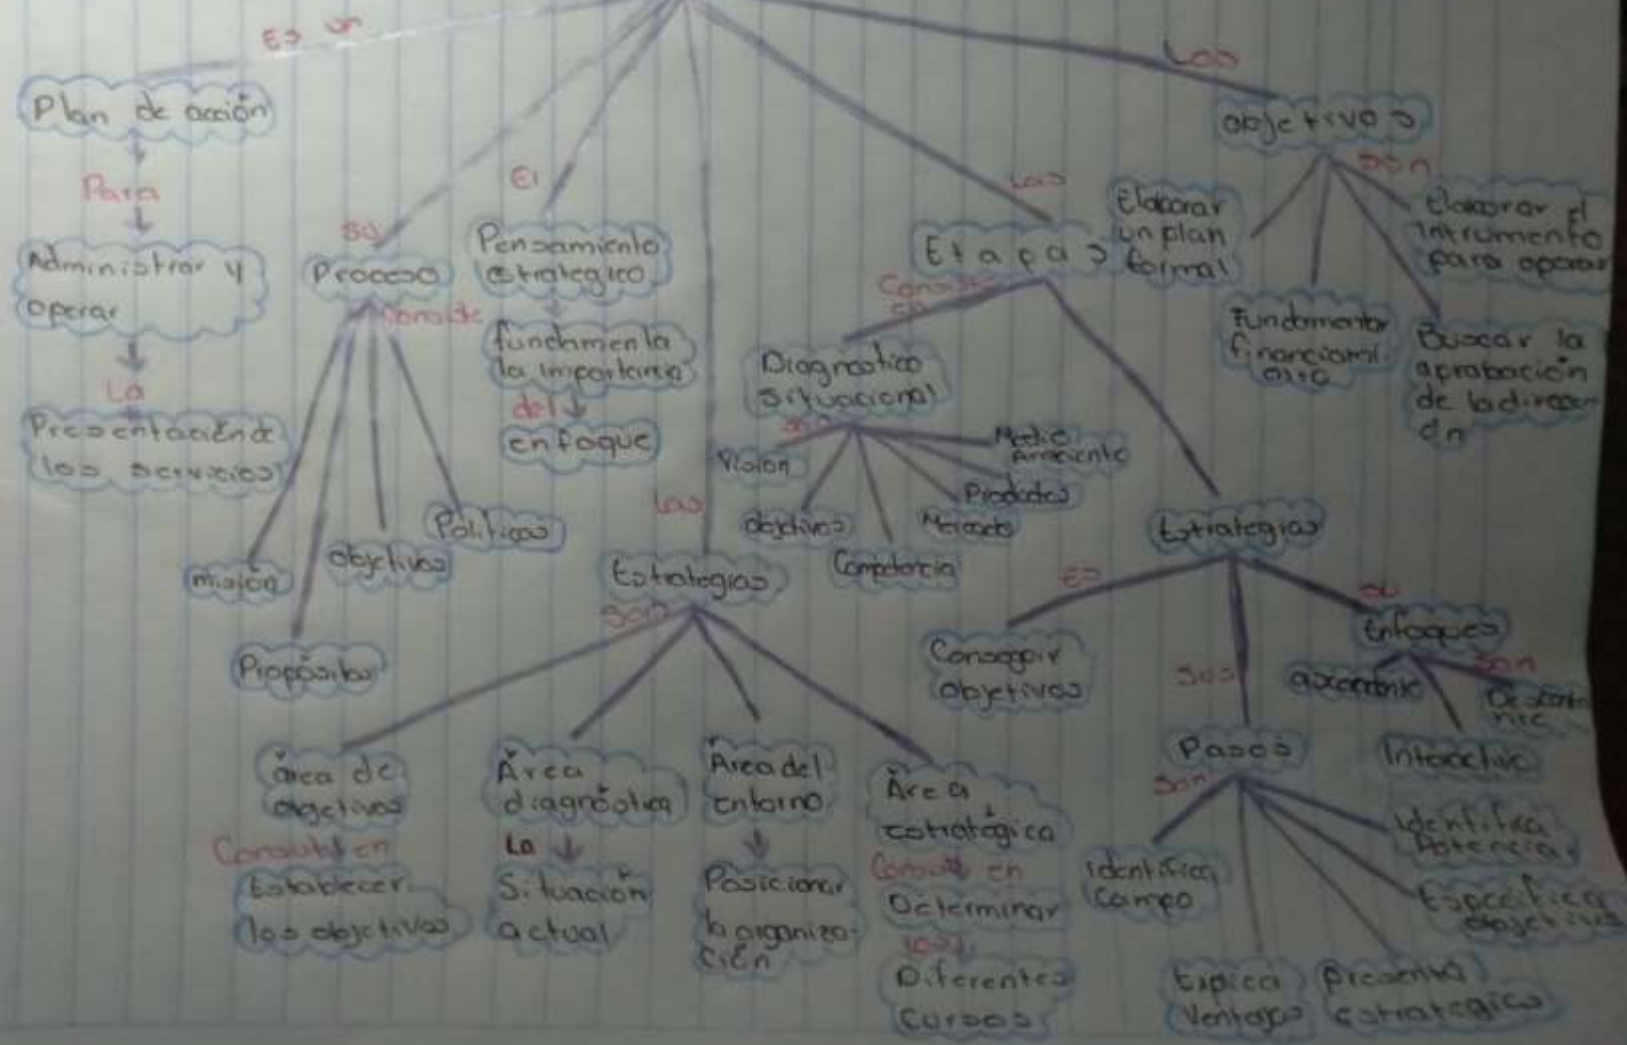 Es un
Plan de acción
Para
Administrar y
operar
La
Presentación de
los servicios
su
Proceso
Consite
misión
Propósitos
objetivos
Politicas
El
Pensamiento
estrategico
fundamenta
la importancia
del
enfoque
Las
Estrategias
Son
área de
objetivos
Consiste en
Establecer
los objetivos
Área
diagnóstica
La
Situación
actual
Área del
entorno
Posicionar
la organiza-
ción
Área
estratégica
Consiste en
Determinar
los
Diferentes
Cursos
Las
Etapas
Diagnostico
Situacional
Son
Vision
objetivos
Competencia
Mercado
Productos
Medio
Ambiente
Estrategias
Es
Conseguir
objetivos
Sus
Pasos
Son
identifica
Campo
Explica
Ventajas
Presenta
estrategica
Especifica
objetivos
identifica
Potencia
su
Enfoques
Son
ascendente
Interactivo
Los
objetivos
son
Elaborar
un plan
formal
Fundamentar
Buscar la
aprobación
de la direcci
on
Elaborar el
intrumento
para operar